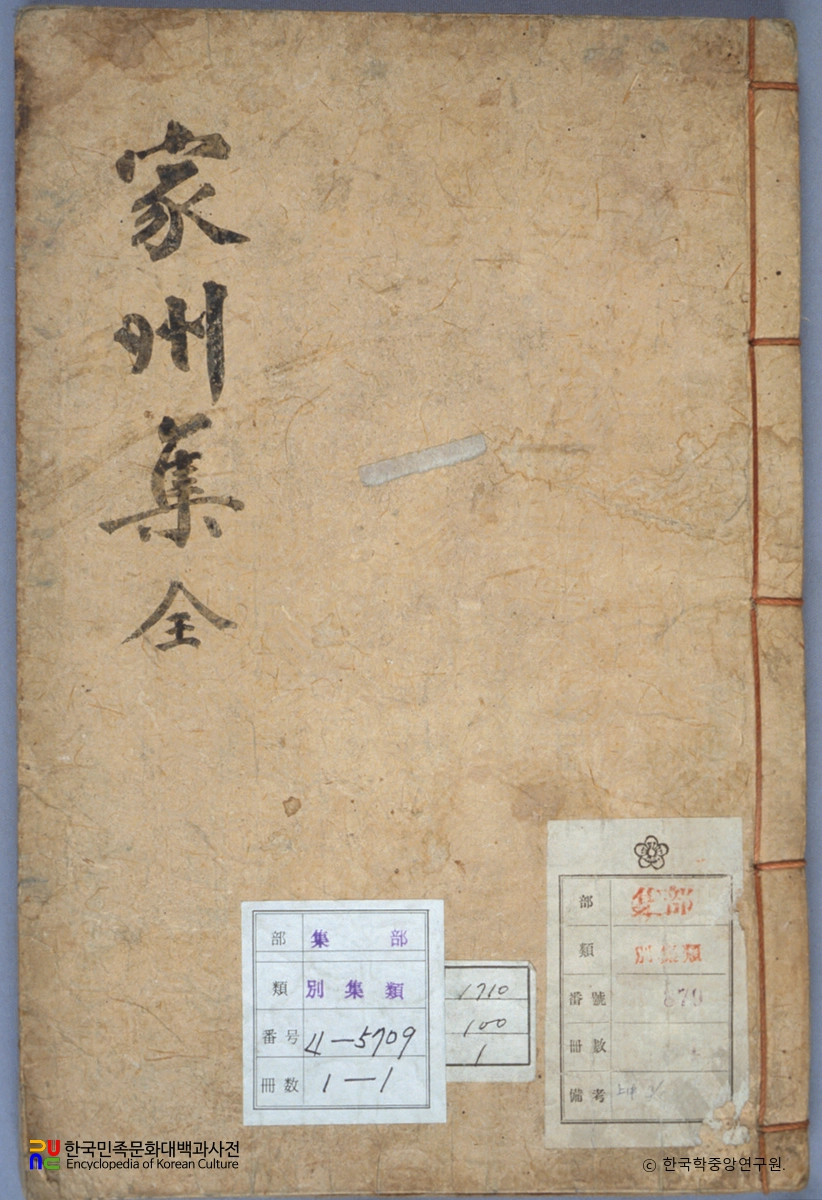 家州集 全
部 集部
類 別集類
番号 4-5709
冊数 1-1
1710
100
1
部 集部
類 別集類
番號 670
冊數
備考
한국민족문화대백과사전
Encyclopedia of Korean Culture
© 한국학중앙연구원.